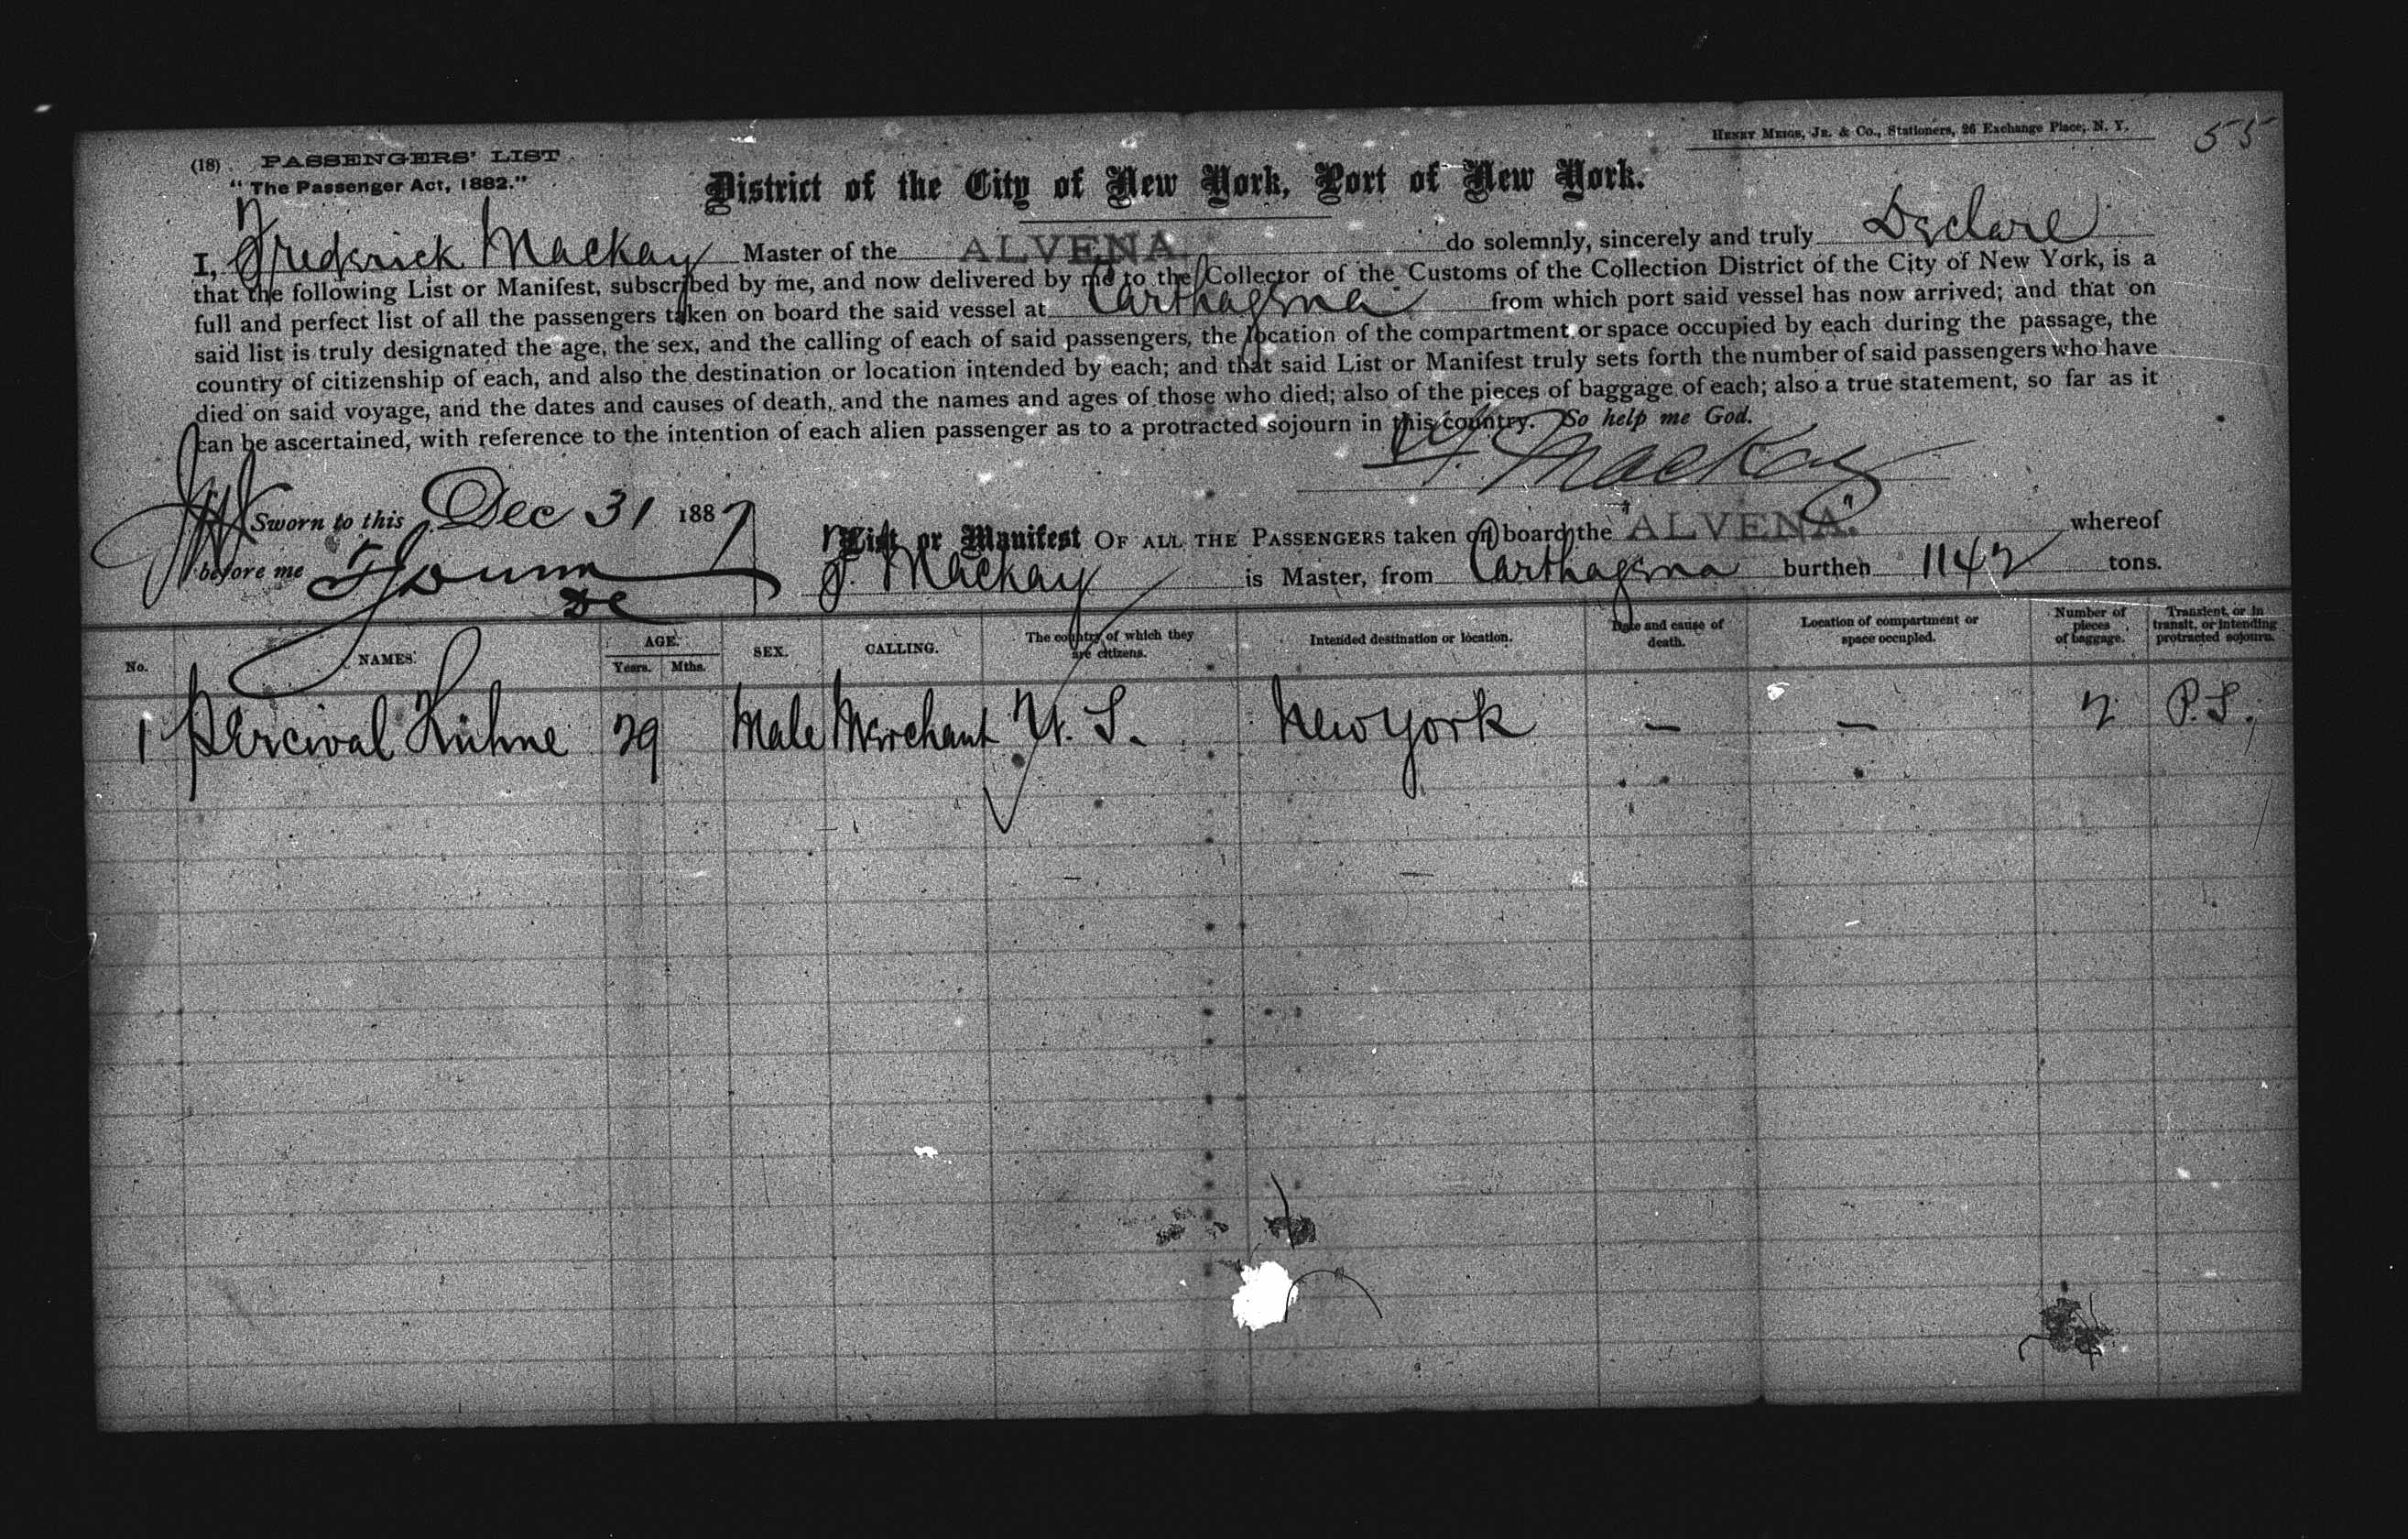 HENRY MEIGS, JR. & CO., Stationers, 26 Exchange Place, N. Y.
55
(18) PASSENGERS' LIST
"The Passenger Act, 1882."
District of the City of New York, Port of New York.
I, Frederick Mackay Master of the ALVENA do solemnly, sincerely and truly Declare
that the following List or Manifest, subscribed by me, and now delivered by me to the Collector of the Customs of the Collection District of the City of New York, is a
full and perfect list of all the passengers taken on board the said vessel at Carthagena from which port said vessel has now arrived; and that on
said list is truly designated the age, the sex, and the calling of each of said passengers, the location of the compartment or space occupied by each during the passage, the
country of citizenship of each, and also the destination or location intended by each; and that said List or Manifest truly sets forth the number of said passengers who have
died on said voyage, and the dates and causes of death, and the names and ages of those who died; also of the pieces of baggage of each; also a true statement, so far as it
can be ascertained, with reference to the intention of each alien passenger as to a protracted sojourn in this country. So help me God.
F. Mackay
Sworn to this Dec 31 1887
before me
List or Manifest OF ALL THE PASSENGERS taken on board the "ALVENA." whereof
F. Mackay is Master, from Carthagena burthen 1142 tons.
No. NAMES. AGE. Years. Mths. SEX. CALLING. The country of which they are citizens. Intended destination or location. Date and cause of death. Location of compartment or space occupied. Number of pieces of baggage. Transient, or in transit, or intending protracted sojourn.
1 Percival Kühne 29 Male Merchant U. S. New York — — 2 P.S.